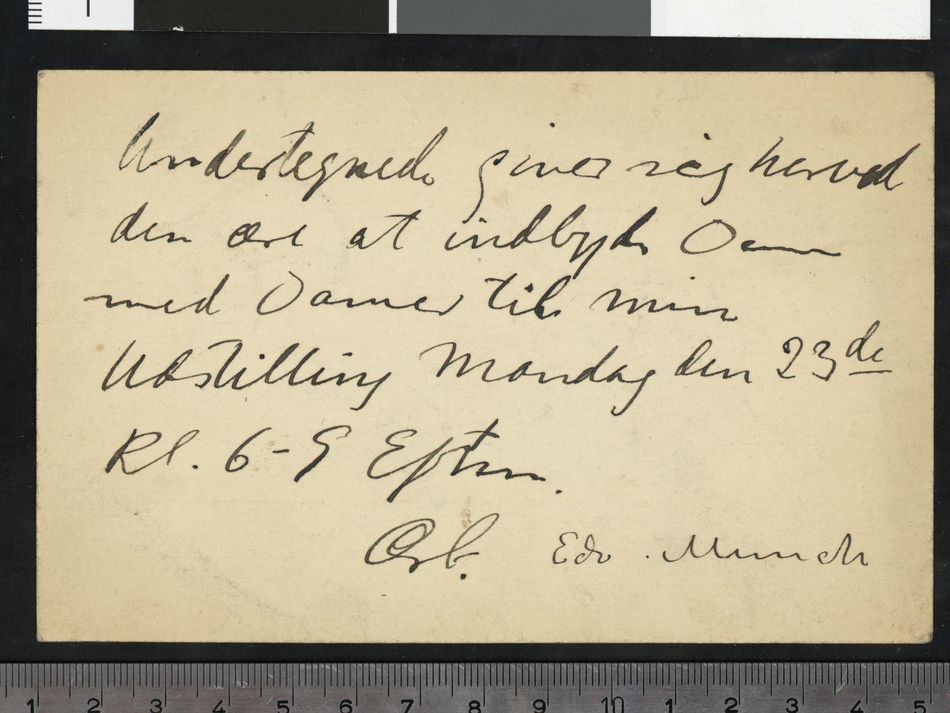 Undertegnede giver sig herved
den ære at indbyde Dem
med Damer til min
Udstilling Mandag den 23de
Kl. 6-9 Eftm.
Erb. Edv. Munch
1 2 3 4 5 6 7 8 9 10 1 2 3 4 5